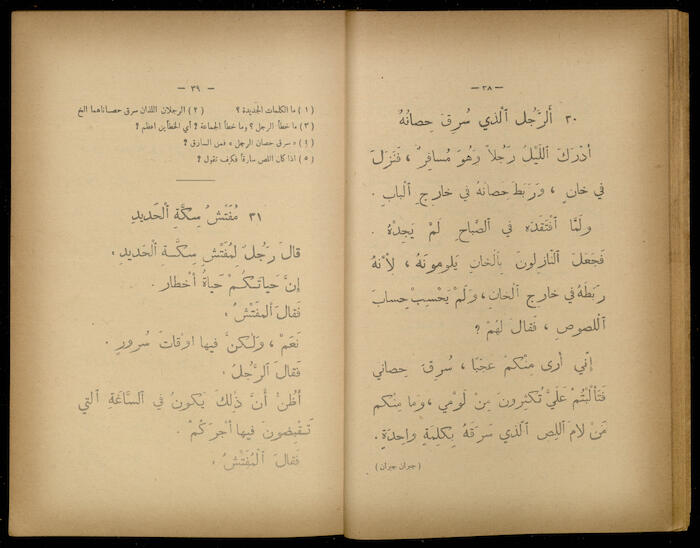 — ٣٨ —
٣٠ أَلرَّجُل ٱلَّذي سُرِقَ حِصانُهُ
أَدْرَكَ ٱللَّيْلُ رَجُلاً وَهُوَ مُسافِرٌ ، فَنَزَلَ
في خانٍ ، وَرَبَطَ حِصانَهُ في خارِجِ ٱلبابِ .
وَلَمَّا ٱفْتَقَدَهُ في الصَّباحِ لَمْ يَجِدْهُ .
فَجَعَلَ ٱلنَّازِلونَ بِٱلخانِ يَلومونَهُ ، لِأَنَّهُ
رَبَطَهُ في خارِجِ ٱلخانِ ، وَلَمْ يَحْسِبْ حِسابَ
ٱللُصوصِ ، فَقالَ لَهُمْ ؟
إِنّي أَرى مِنْكُم عَجَبًا ، سُرِقَ حِصاني
فَتَأَلَّبْتُمْ عَلَيَّ تُكْثِرونَ مِن لَوْمي ، وَما مِنْكُم
مَنْ لامَ ٱللِصَ ٱلَّذي سَرَقَهُ بِكَلِمَةٍ واحِدَةٍ .
( جبران جبران )
— ٣٩ —
( ١ ) ما الكلمات الجديدة ؟ ( ٢ ) الرجلان اللذان سرق حصاناهما الخ
( ٣ ) ما خطأ الرجل ؟ وما خطأ الجماعة ؟ أي الخطأين اعظم ؟
( ٤ ) « سرق حصان الرجل » فمن السارق ؟
( ٥ ) اذا كان اللص سارقاً فكيف تقول ؟
٣١ مُفَتِّشُ سِكَّةِ ٱلْحَديدِ
قالَ رَجُلٌ لِمُفَتِّشِ سِكَّةِ ٱلْحَديدِ :
إِنَّ حَياتَكُمْ حَياةُ أَخْطار .
فَقالَ ٱلمُفَتِّشُ :
نَعَمْ ، وَلكِنَّ فيها أَوْقاتَ سُرورٍ .
فَقالَ ٱلرَّجُلُ :
أَظُنُّ أَنَّ ذلِكَ يَكونُ في ٱلسَّاعَةِ ٱلتي
تَقْبِضونَ فيها أَجْرَكُمْ .
فَقالَ ٱلْمُفَتِّشُ :